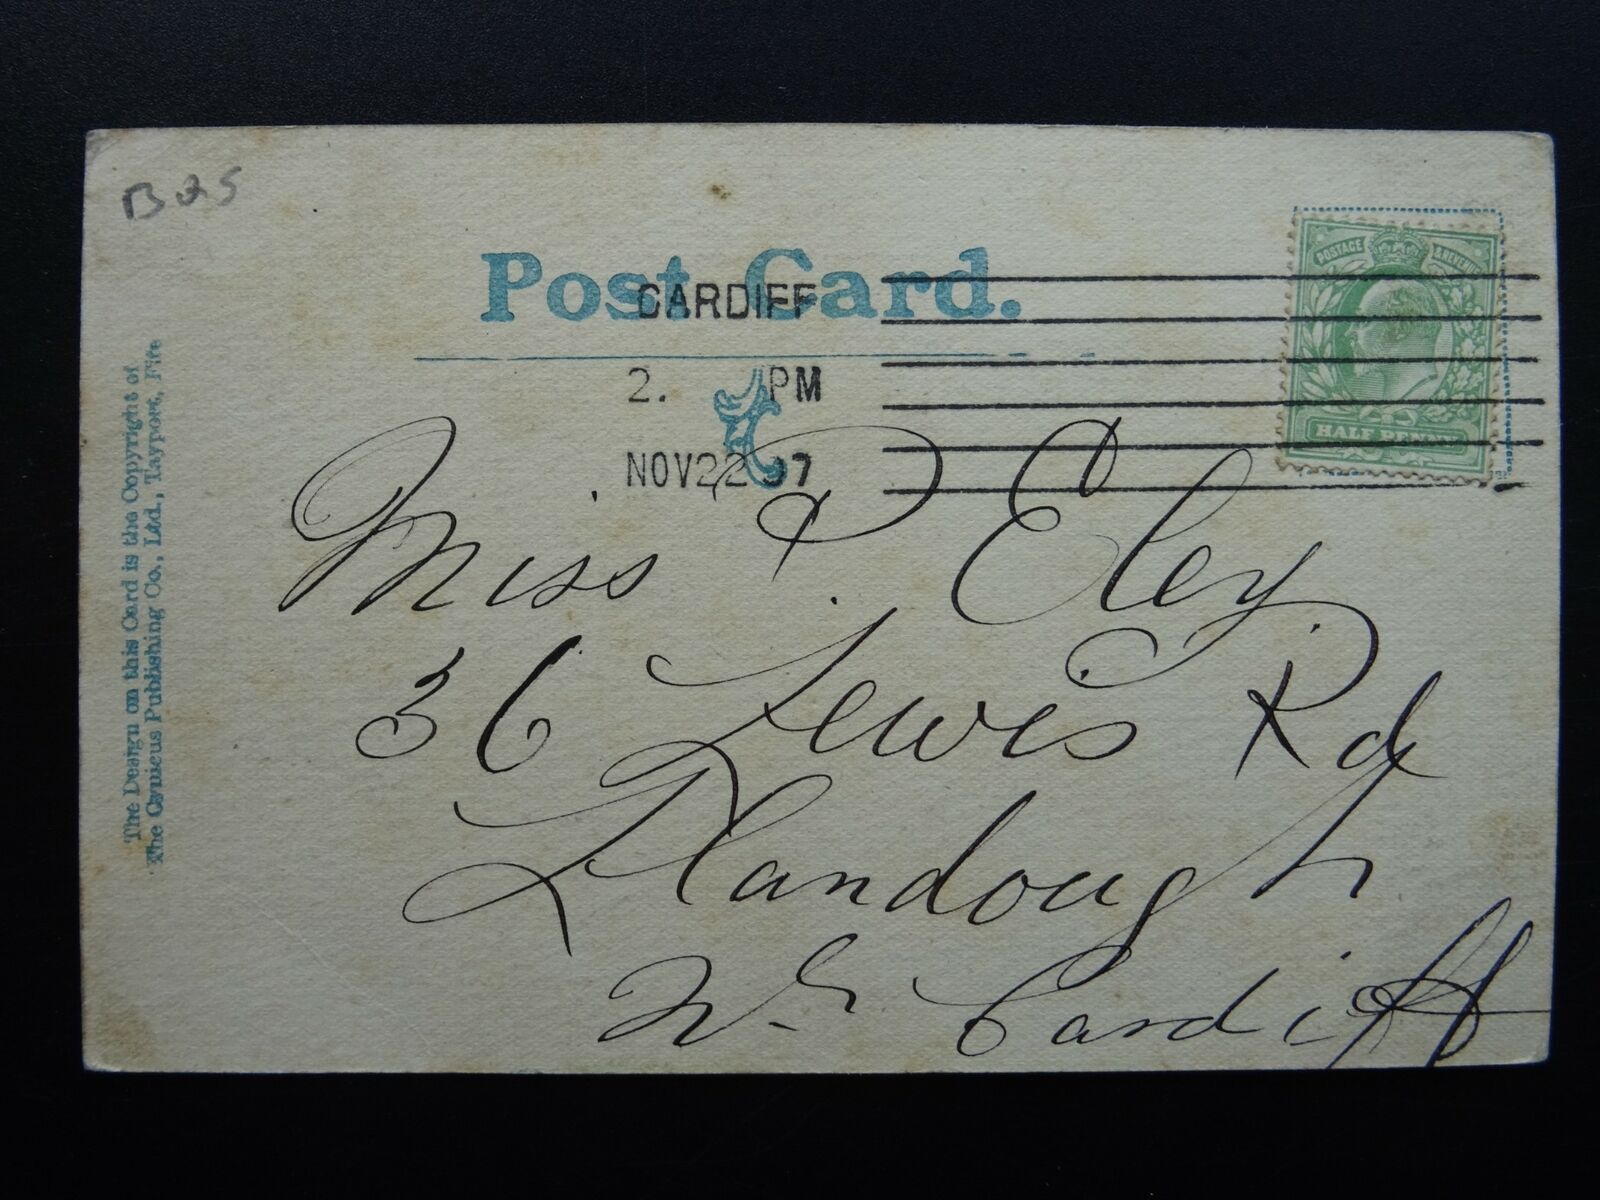 B25
Post Card.
CARDIFF
2. PM
NOV22 07
POSTAGE & REVENUE
HALF PENNY
The Design on this Card is the Copyright of
The Cynicus Publishing Co., Ltd., Tayport, Fife
Miss P Eley
36 Lewis Rd
Llandough
Nr Cardiff